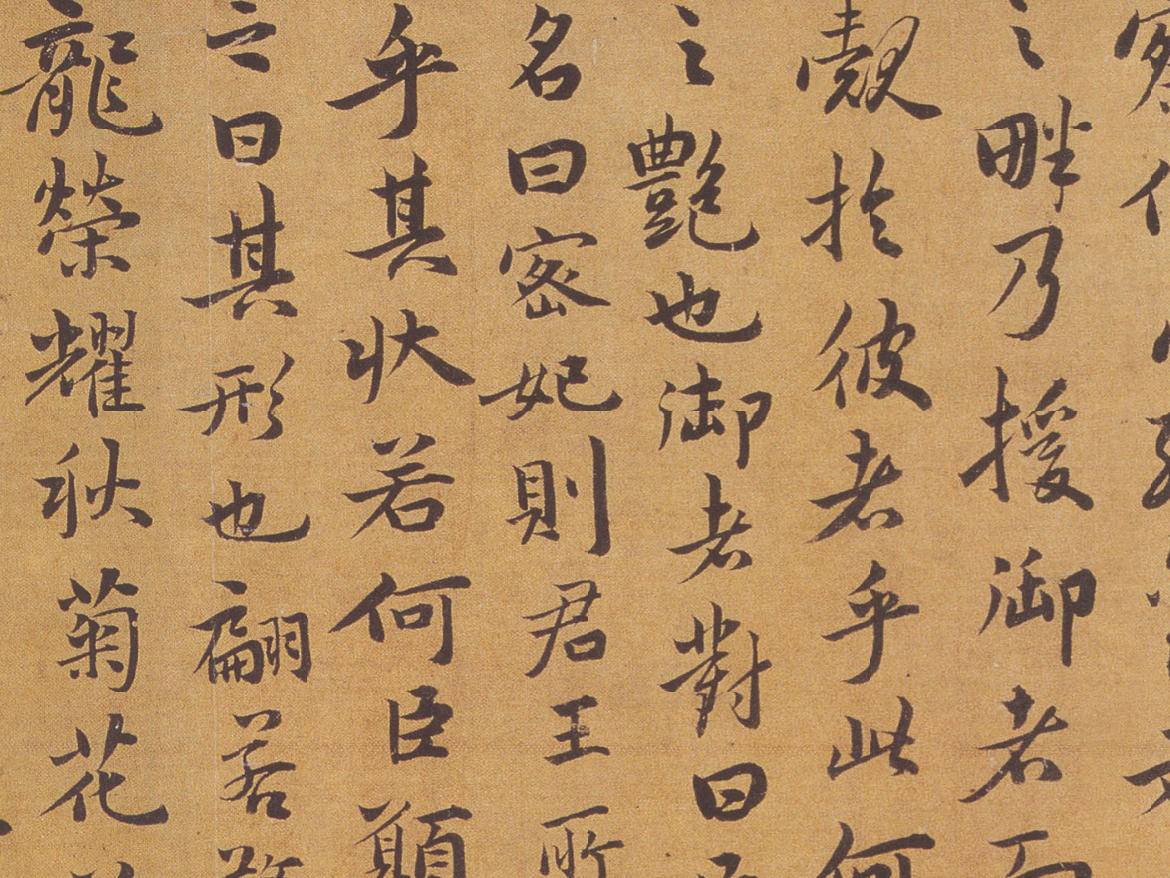 之畔乃援御者而
覿於彼者乎此何
之艷也御者對曰
名曰密妃則君王所
乎其状若何臣願
之曰其形也翩若
龍榮耀秋菊花